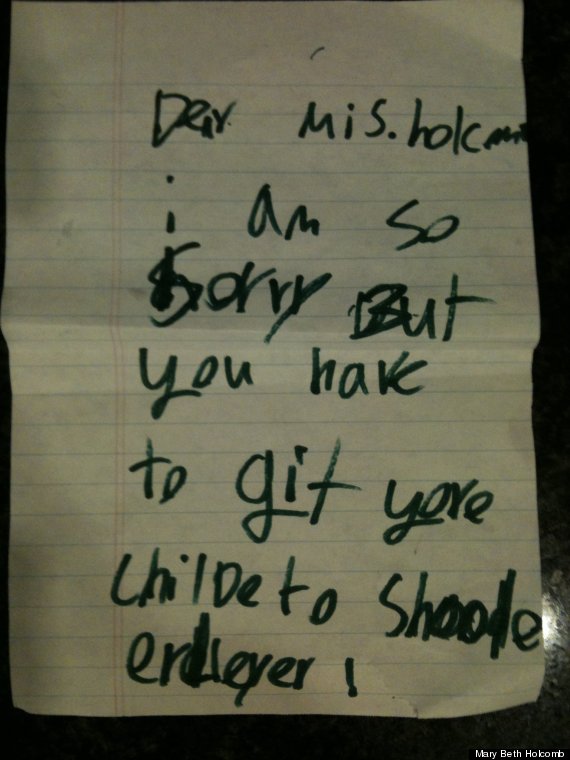 Dear Mis. holcmm
i am so
sorry But
you have
to git yore
childe to shoole
erlleyer!
Mary Beth Holcomb